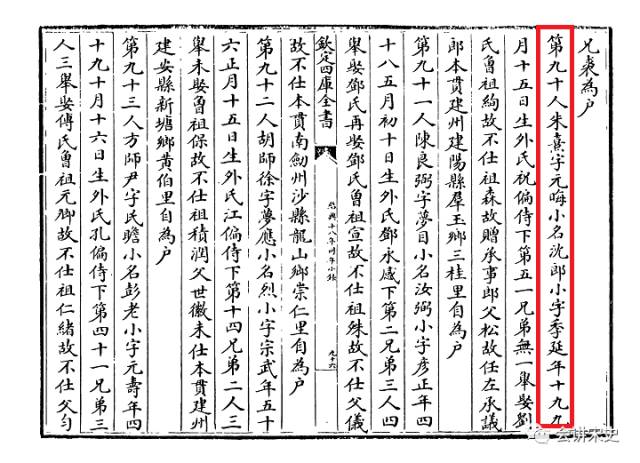 兄裘為户
第九十人朱熹字元晦小名沈郎小字季延年十九九
月十五日生外氏祝偏侍下第五一兄弟無一舉娶劉
氏曽祖絢故不仕祖森故贈承事郎父松故任左承議
郎本貫建州建陽縣羣玉鄉三桂里自為户
第九十一人陳良弼字夢目小名汝弼小字彦正年四
十八五月初十日生外氏鄧永感下第二兄弟三人四
舉娶鄧氏再娶鄧氏曽祖宣故不仕祖殊故不仕父儀
欽定四庫全書
紹興十八年同年小録
九十六
故不仕本貫南劎州沙縣龍山鄉崇仁里自為户
第九十二人胡師徐字夢應小名烈小字宗武年五十
六正月十五日生外氏江偏侍下第十四兄弟二人三
舉未娶曽祖保故不仕祖積潤父世徽未仕本貫建州
建安縣新塘鄉黄伯里自為户
第九十三人方師尹字民瞻小名彭老小字元壽年四
十九十月十六日生外氏孔偏侍下第四十一兄弟三
人三舉娶傅氏曽祖元脚故不仕祖仁緒故不仕父勻
会讲宋史